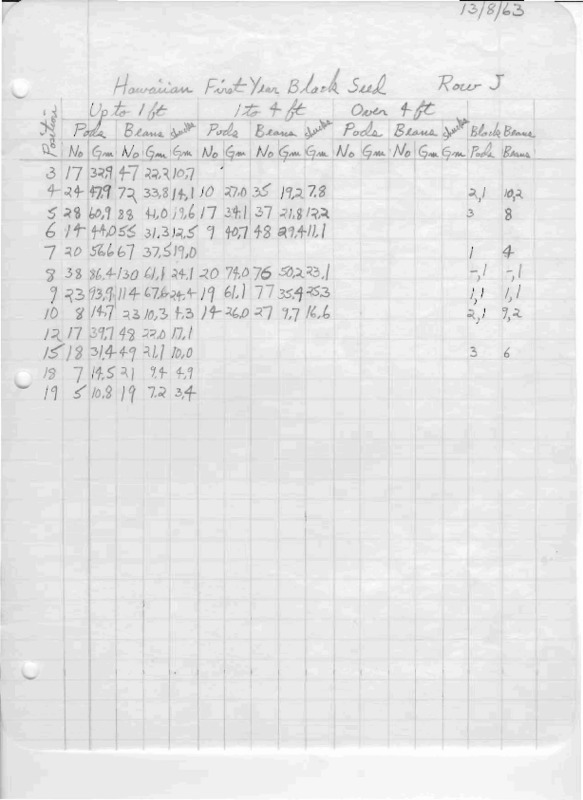 13/8/63
Hawaiian First Year Black Seed Row J
Up to 1 ft 1 to 4 ft Over 4 ft
Position Pods Beans chucks Pods Beans chucks Pods Beans chucks Black Beans
No Gm No Gm Gm No Gm No Gm Gm No Gm No Gm Gm Pods Beans
3 17 32,9 47 22,2 10,7
4 24 47,9 72 33,8 14,1 10 27,0 35 19,2 7,8 2,1 10,2
5 28 60,9 88 41,0 19,6 17 34,1 37 21,8 12,2 3 8
6 14 44,0 55 31,3 12,5 9 40,7 48 29,4 11,1
7 20 56,6 67 37,5 19,0 1 4
8 38 86,4 130 61,1 24,1 20 74,0 76 50,2 23,1 -,1 -,1
9 23 93,9 114 67,6 24,4 19 61,1 77 35,4 25,3 1,1 1,1
10 8 14,7 23 10,3 4,3 14 26,0 27 9,7 16,6 2,1 9,2
12 17 39,7 48 22,0 17,1
15 18 31,4 49 21,1 10,0 3 6
18 7 14,5 21 9,4 4,9
19 5 10,8 19 7,2 3,4